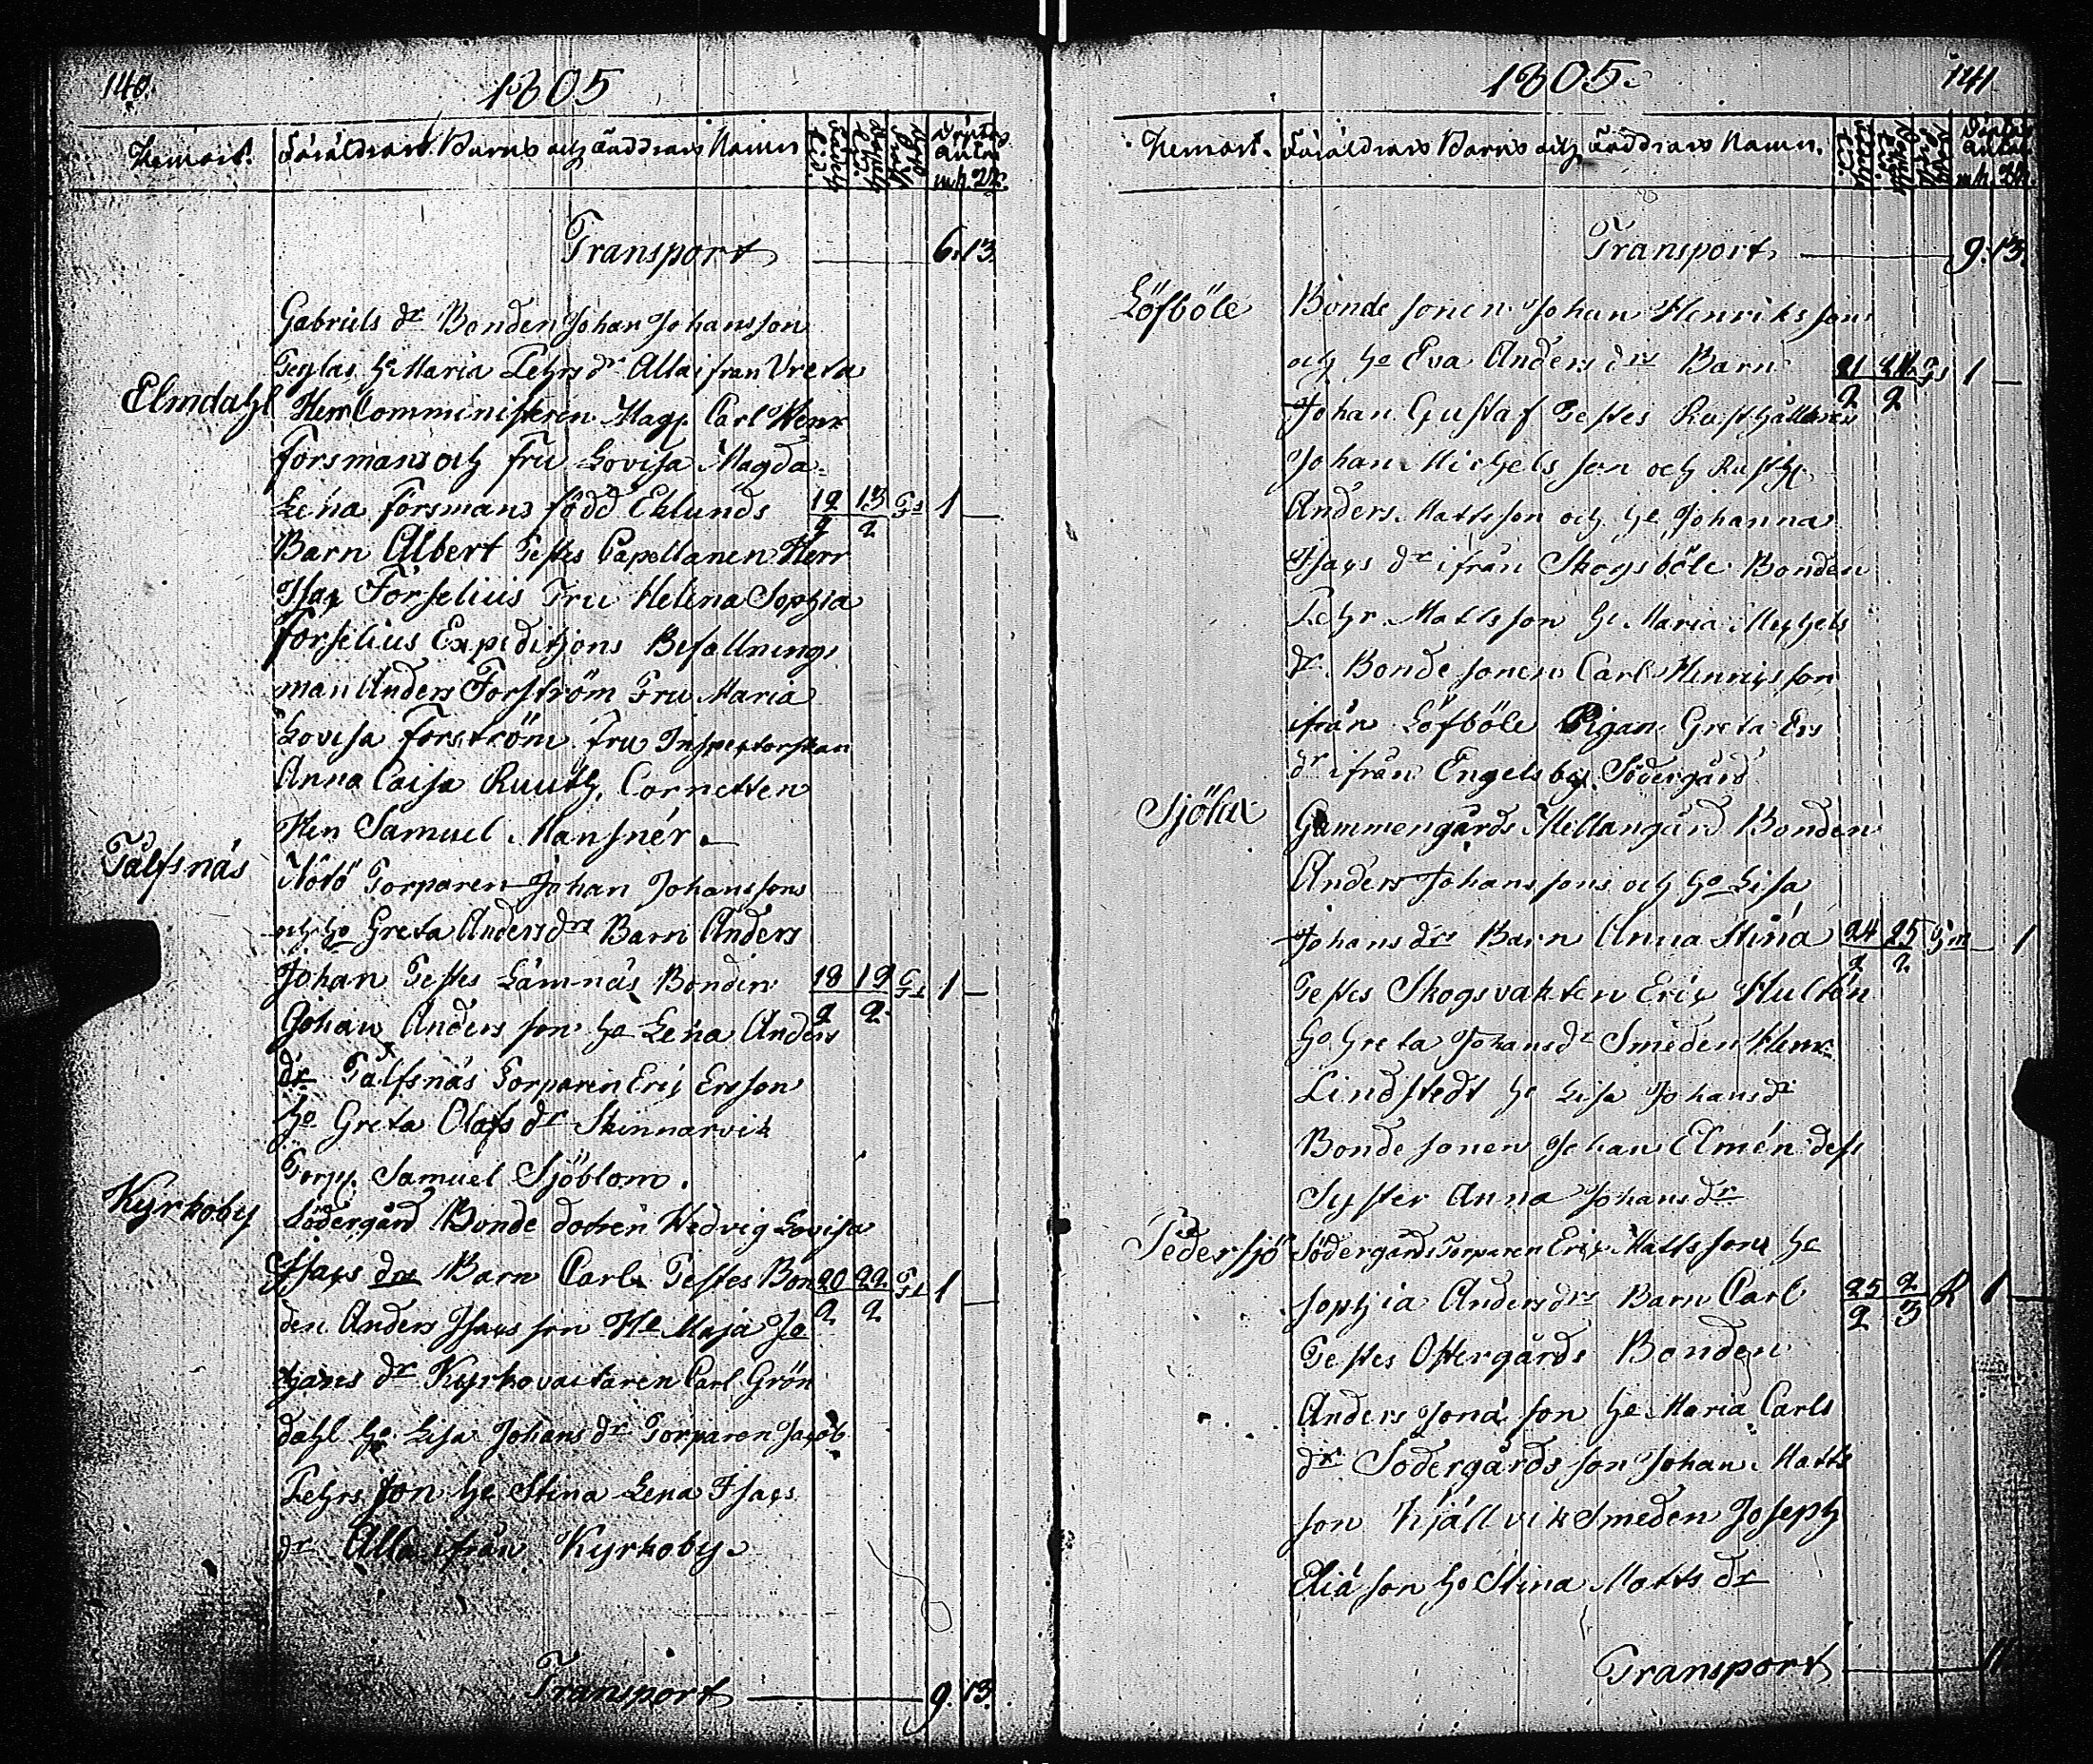 140.
1805
Hemort. Föräldrars Barns och Faddrars Namn
Transport 6. 13
Gabriels dr Bonden Johan Johansson
h. Maria Pehrs dr Alla ifran Vreta
Elmdahl Herr Comministern Mag. Carl Henr
Forsmans och Fru Lovisa Magda-
Lena Forsmans född Eklunds 12/2 13/2 Fs 1 —
Barn Albert Testes Capellanen Herr
Isac Forselius Fru Helena Sophia
Forselius Expeditions Befallnings
man Anders Forström Fru Maria
Lovisa Forström fru Inspectorskan
Anna Caisa Ruuth, Cornetten
Herr Samuel Mansnér.
Tålfsnäs Torparen Johan Johanssons
och ho Greta Anders drs Barn Anders
Johan Testes Lämnäs Bonden 18/2 19/2 Fs 1 —
Johan Andersson ho Lena Anders
dr Tålfsnäs Torparen Eric Ersson
ho Greta Olofs dr Skinnarvik
Torp. Samuel Sjöblom.
Kyrkoby Södergård Bonde dotren Hedvig Lovisa
Isacs drs Barn Carl Testes Bon 20/2 22/2 Fs 1 —
den Anders Isacsson Ho Maja Jo
hans dr Kyrkovaktaren Carl Grön
dahl ho Lisa Johans dr Torparen Jacob
Pehrsson ho Stina Lena Isacs
dr Alla ifrån Kyrkoby.
Transport 9. 13.
1805.
141
Hemort. Föräldrars Barns och Faddrars Namn.
Transport 9. 13.
Löfböle Bonde sonen Johan Henrikssons
och ho Eva Anders drs Barn 21/2 24/2 Fs 1 —
Johan Gustaf Testes Rusthållaren
Johan Michelsson och Rusth.
Anders Mattsson och ho Johanna
Isacs dr ifrån Skogsböle Bonden
Pehr Mattsson ho Maria Michels
dr Bonde sonen Carl Henricsson
ifrån Löfböle Pigan Greta Ers
dr ifrån Engelsby Södergård
Sjölax Gammengårds Mellangård Bonden
Anders Johanssons och ho Lisa
Johans drs Barn Anna Stina 24/2 25/2 Gm — 1
Testes Skogsvakten Eric Hultén
ho Greta Johans dr Smeden Henr.
Lindstedt ho Lisa Johans dr
Bonde sonen Johan Elmén dess
Syster Anna Johans dr
Pedersjö Södergårds Torparen Eric Mattssons ho
Sophia Anders drs Barn Carl 25/2 2/3 R 1 —
Testes Östergårds Bonden
Anders Jonasson ho Maria Carls
dr Södergårds son Johan Matts
son Kjällvik Smeden Joseph
Eliasson ho Stina Matts dr
Transport 11